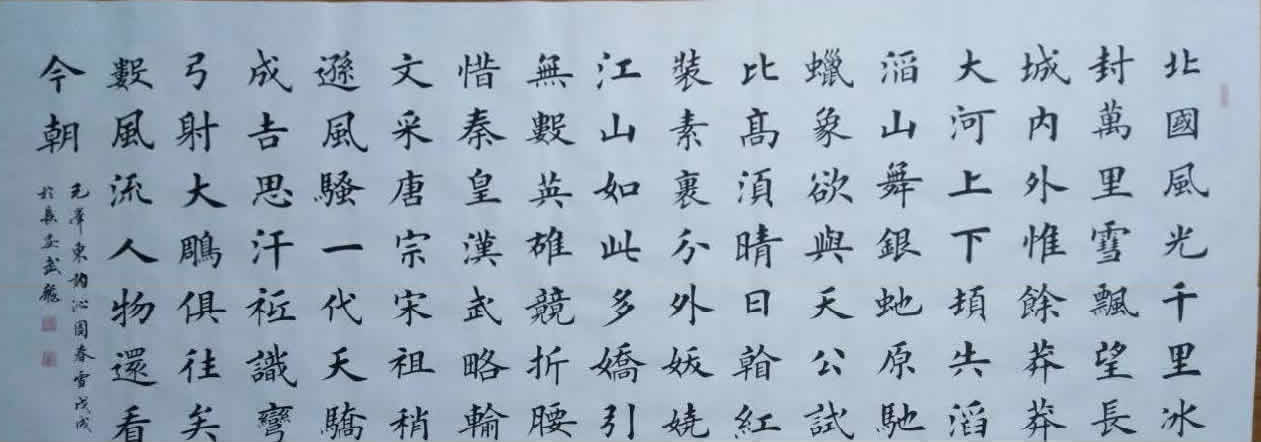 北國風光千里冰
封萬里雪飄望長
城内外惟餘莽莽
大河上下頓失滔
滔山舞銀虵原馳
蠟象欲與天公試
比高須晴日㸔紅
裝素裹分外妖嬈
江山如此多嬌引
無數英雄競折腰
惜秦皇漢武略輸
文采唐宗宋祖稍
遜風騷一代天驕
成吉思汗衹識彎
弓射大鵰俱往矣
數風流人物還看
今朝
毛澤東詞沁園春雪戊戌
於長安武龍